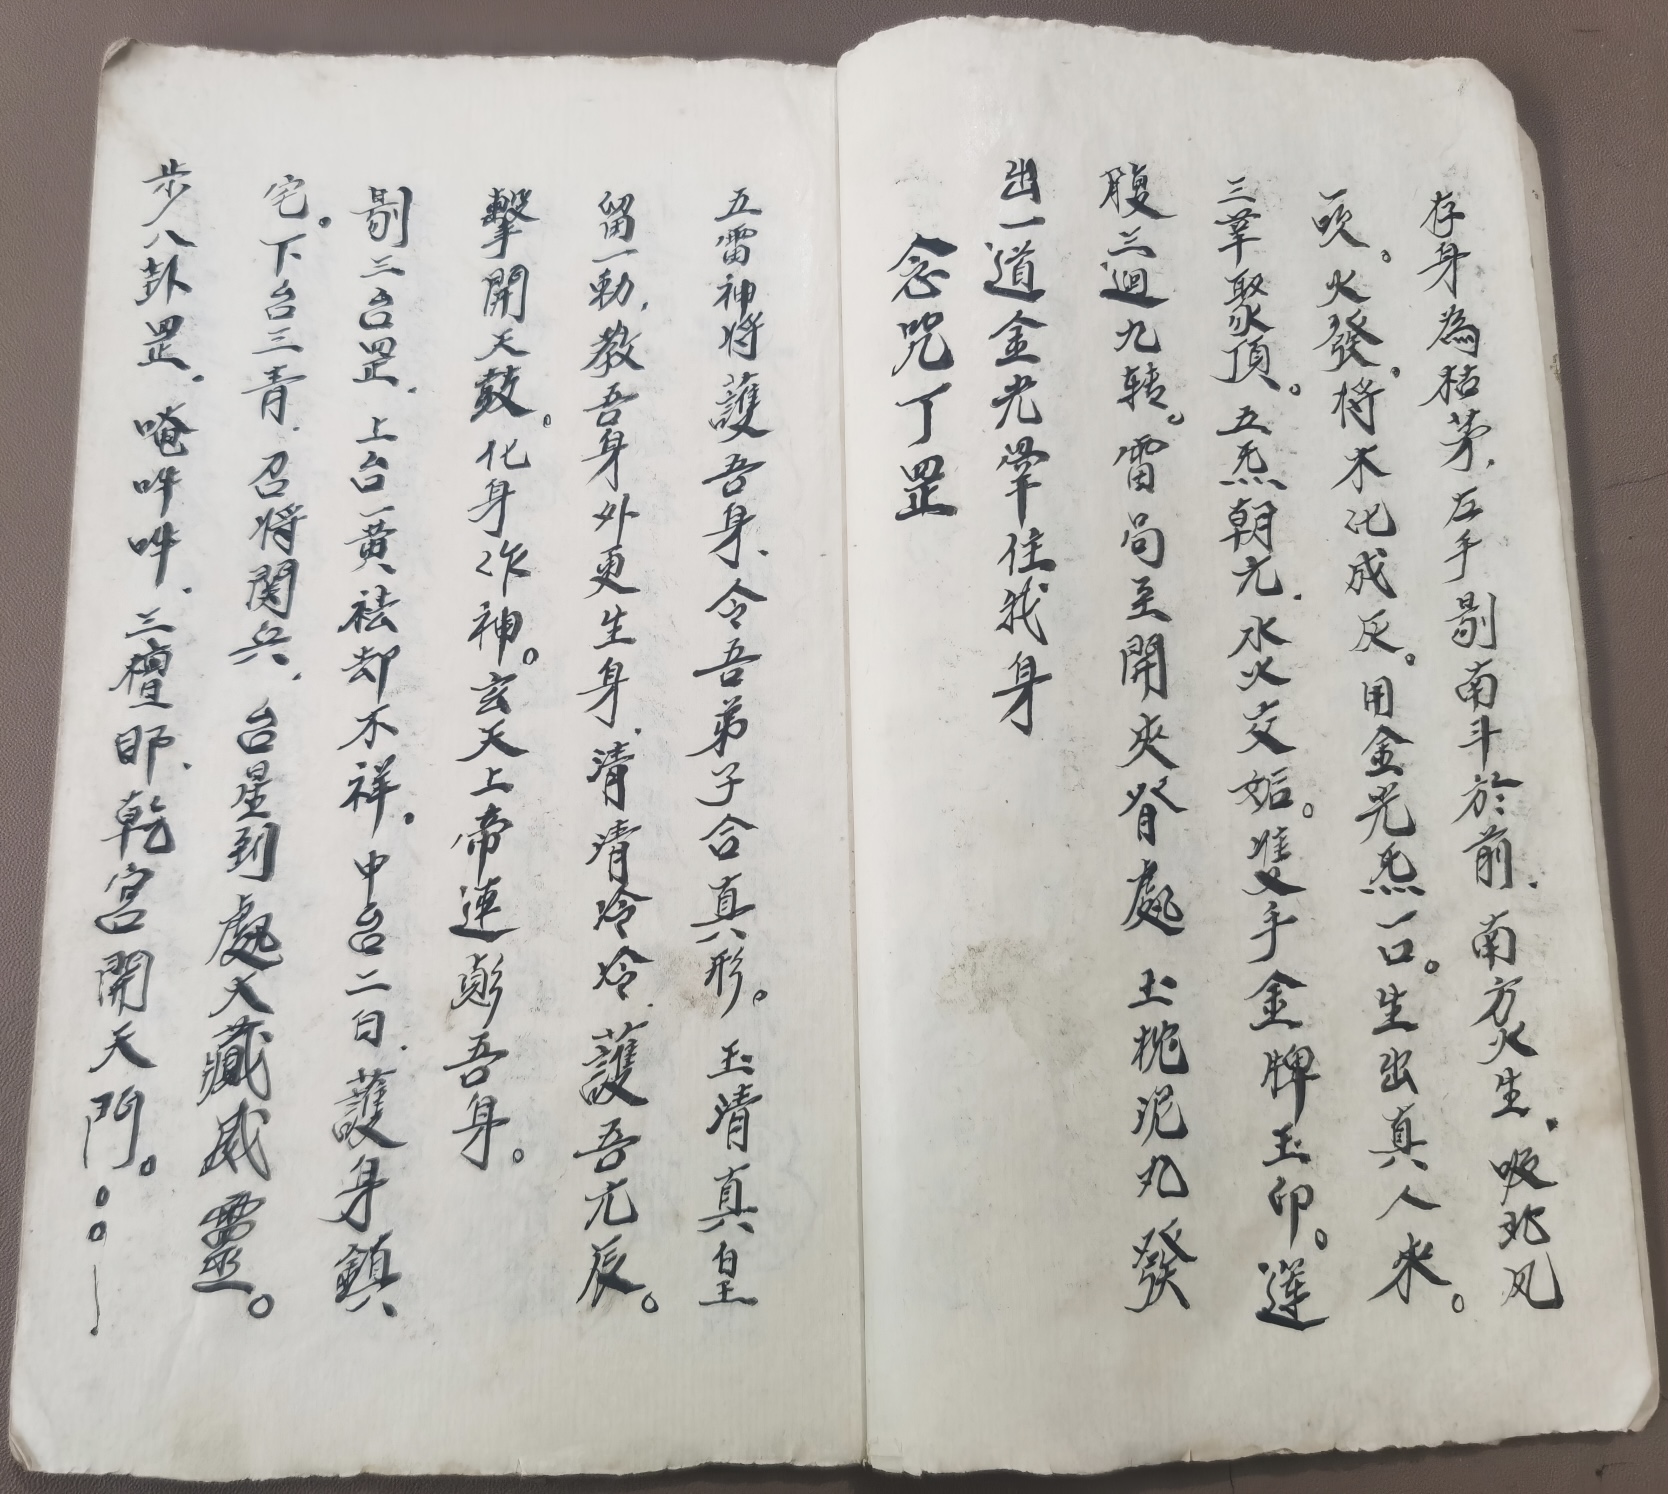 存身為枯茅，左手剔南斗於前，南方火生，吸北风
一吹。火發，将木化成灰。用金光炁一口。生出真人来。
三華聚頂。五炁朝元，水火交姤。雙手金牌玉印。運
腹三迴九转。雷局至開夾脊處 土枕泥丸發
出一道金光罩住我身
念咒丁罡
五雷神将護吾身，令吾弟子合真形。玉清真皇
留一勅，教吾身外更生身，清清冷冷，護吾元辰。
擊開天鼓。化身作神。玄天上帝速彭吾身。
剔三台罡，上台一黄祛却不祥。中台二白，護身鎮
宅。下台三青，召将関兵，台星到處大藏威靈。
步八卦罡，唵吽吽，三檀師，乾宮開天門。